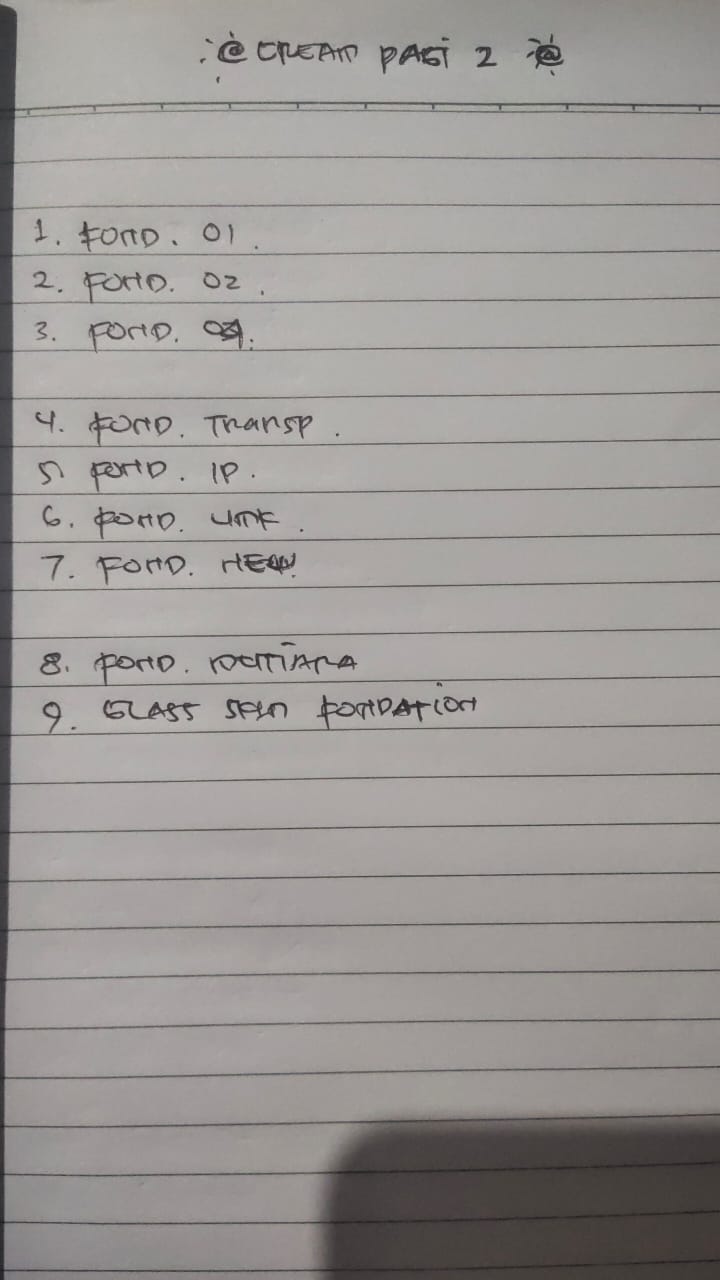 @ CREAM PAGI 2 @
1. FOND. 01.
2. FOND. 02.
3. FOND.
4. FOND. Transp.
5. FOND. IP.
6. FOND.
7. FOND. NEW.
8. FOND. MUTIARA
9. GLASS SKIN FONDATION